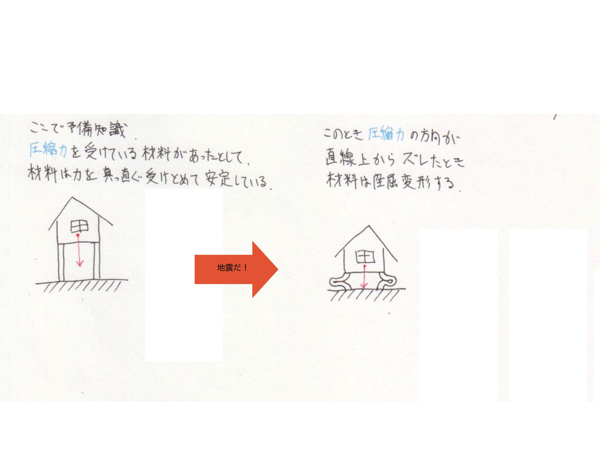 ここで予備知識.
圧縮力を受けている材料があったとして、
材料は力を真っ直ぐ受けとめて安定している.
このとき圧縮力の方向が
直線上からズレたとき
材料は座屈変形する.
地震だ!